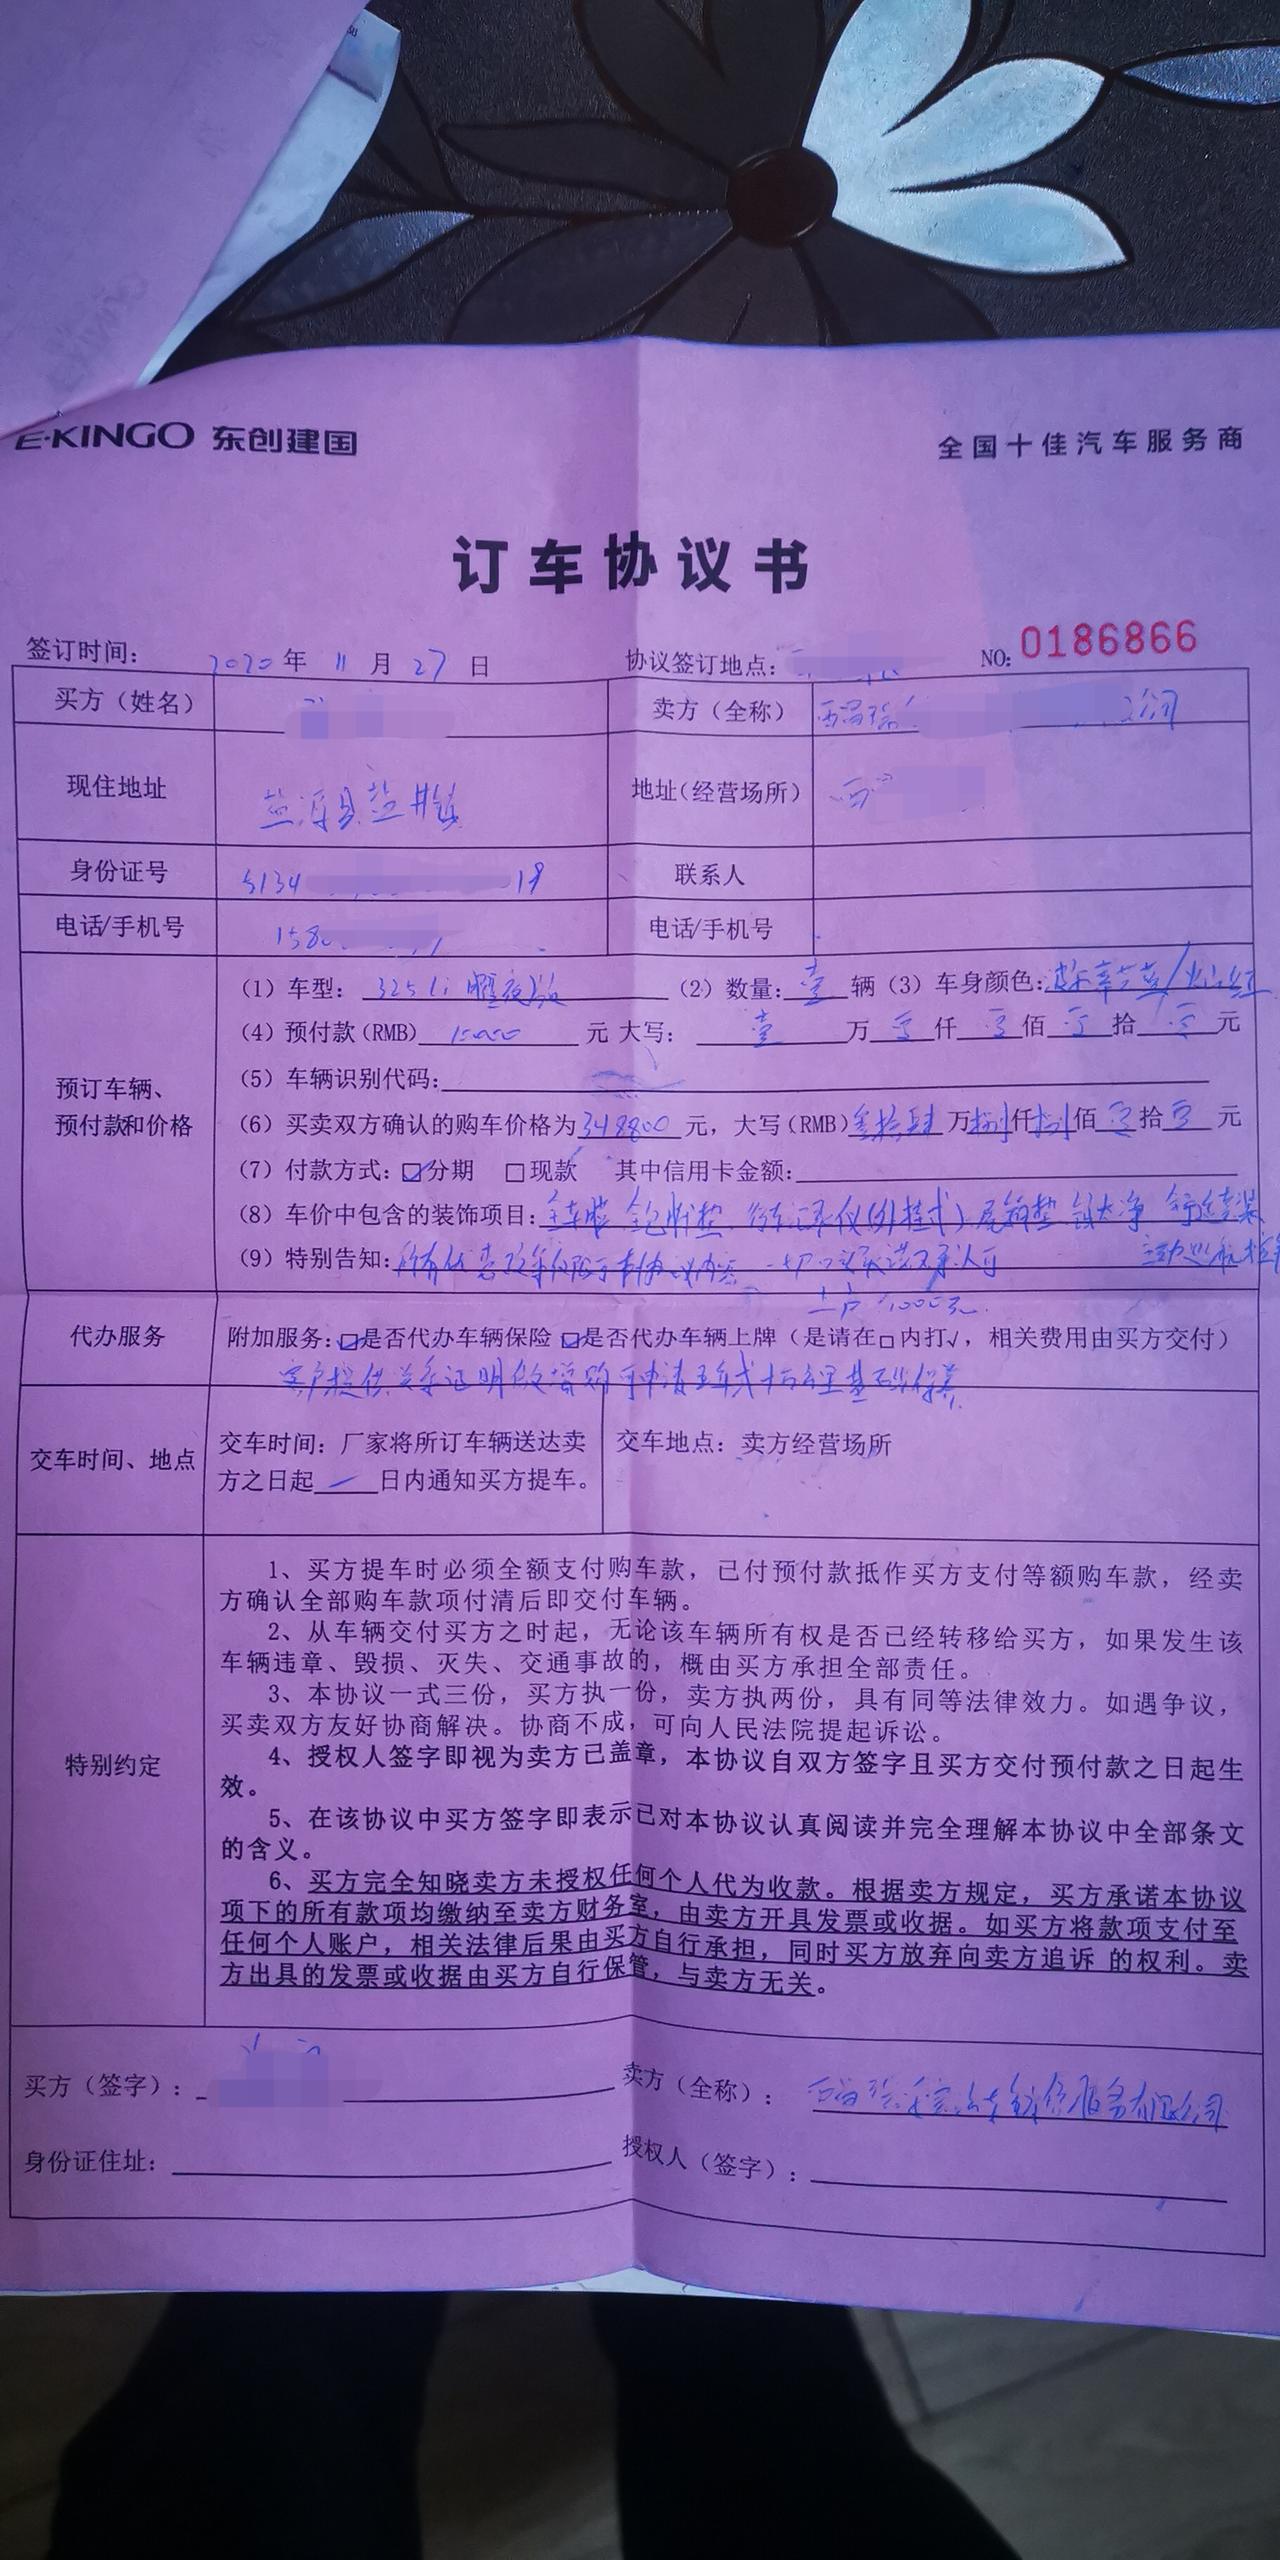 E·KINGO 东创建国
全国十佳汽车服务商
订车协议书
签订时间： 2020 年 11 月 27 日
协议签订地点：
NO: 0186866
买方（姓名）
卖方（全称） 西昌瑞 公司
现住地址 盐源县盐井镇
地址（经营场所） 西
身份证号 5134 19
联系人
电话/手机号 158
电话/手机号
预订车辆、
预付款和价格
（1）车型： 325Li 曜夜版 （2）数量：壹 辆（3）车身颜色：
（4）预付款（RMB） 10000 元 大写： 壹 万 零 仟 零 佰 零 拾 零 元
（5）车辆识别代码：
（6）买卖双方确认的购车价格为 348800 元，大写（RMB）叁拾肆 万 捌 仟 捌 佰 零 拾 零 元
（7）付款方式：☑分期 □现款 其中信用卡金额：
（8）车价中包含的装饰项目：全车膜 全包脚垫、行车记录仪（外挂式）、尾箱垫
（9）特别告知：所有优惠政策仅限于本协议内容 一切口头承诺不承认可
上户 1000元.
代办服务
附加服务：☑是否代办车辆保险 ☑是否代办车辆上牌（是请在□内打√，相关费用由买方交付）
客户提供关系证明做增购可申请五年或十万公里基础保养
交车时间、地点
交车时间：厂家将所订车辆送达卖
方之日起 日内通知买方提车。
交车地点：卖方经营场所
特别约定
1、买方提车时必须全额支付购车款，已付预付款抵作买方支付等额购车款，经卖
方确认全部购车款项付清后即交付车辆。
2、从车辆交付买方之时起，无论该车辆所有权是否已经转移给买方，如果发生该
车辆违章、毁损、灭失、交通事故的，概由买方承担全部责任。
3、本协议一式三份，买方执一份，卖方执两份，具有同等法律效力。如遇争议，
买卖双方友好协商解决。协商不成，可向人民法院提起诉讼。
4、授权人签字即视为卖方已盖章，本协议自双方签字且买方交付预付款之日起生
效。
5、在该协议中买方签字即表示已对本协议认真阅读并完全理解本协议中全部条文
的含义。
6、买方完全知晓卖方未授权任何个人代为收款。根据卖方规定，买方承诺本协议
项下的所有款项均缴纳至卖方财务室，由卖方开具发票或收据。如买方将款项支付至
任何个人账户，相关法律后果由买方自行承担，同时买方放弃向卖方追诉 的权利。卖
方出具的发票或收据由买方自行保管，与卖方无关。
买方（签字）：
卖方（全称）： 西昌瑞 汽车销售服务有限公司
身份证住址：
授权人（签字）：